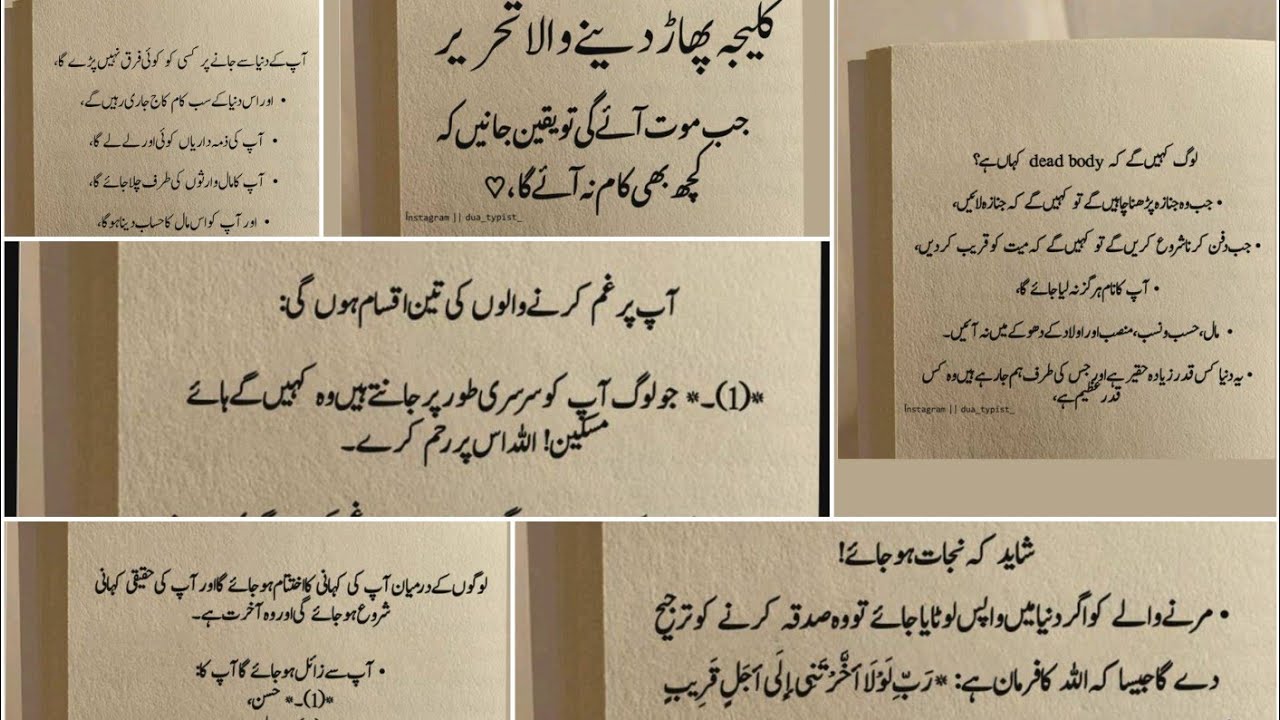 آپ کے دنیا سے جانے پر کسی کو کوئی فرق نہیں پڑے گا،
• اور اس دنیا کے سب کام کاج جاری رہیں گے،
• آپ کی ذمہ داریاں کوئی اور لے لے گا،
• آپ کا مال وارثوں کی طرف چلا جائے گا،
• اور آپ کو اس مال کا حساب دینا ہو گا،
کلیجہ پھاڑ دینے والا تحریر
جب موت آئے گی تو یقین جانیں کہ
کچھ بھی کام نہ آئے گا،♡
Instagram || dua_typist_
لوگ کہیں گے کہ dead body کہاں ہے؟
• جب وہ جنازہ پڑھنا چاہیں گے تو کہیں گے کہ جنازہ لائیں،
• جب دفن کرنا شروع کریں گے تو کہیں گے کہ میت کو قریب کر دیں،
• آپ کا نام ہرگز نہ لیا جائے گا،
• مال، حسب و نسب، منصب اور اولاد کے دھوکے میں نہ آئیں۔
• یہ دنیا کس قدر زیادہ حقیر ہے اور جس کی طرف ہم جا رہے ہیں وہ کس
قدر عظیم ہے،
Instagram || dua_typist_
آپ پر غم کرنے والوں کی تین اقسام ہوں گی:
*(1)۔* جو لوگ آپ کو سرسری طور پر جانتے ہیں وہ کہیں گے ہائے
مسکین! اللہ اس پر رحم کرے۔
لوگوں کے درمیان آپ کی کہانی کا اختتام ہو جائے گا اور آپ کی حقیقی کہانی
شروع ہو جائے گی اور وہ آخرت ہے۔
• آپ سے زائل ہو جائے گا آپ کا:
*(1)۔* حسن،
شاید کہ نجات ہو جائے!
• مرنے والے کو اگر دنیا میں واپس لوٹایا جائے تو وہ صدقہ کرنے کو ترجیح
دے گا جیسا کہ اللہ کا فرمان ہے: *رَبِّ لَوْلَا أَخَّرْتَنِي إِلَى أَجَلٍ قَرِيبٍ